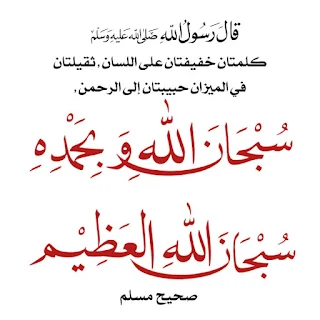 قَالَ رَسُولُ اللهِ صَلَّى اللهُ عَلَيْهِ وَسَلَّمَ
كلمتان خفيفتان على اللسان , ثقيلتان
في الميزان حبيبتان إلى الرحمن ,
سُبْحَانَ اللهِ وَ بِحَمْدِهِ
سُبْحَانَ اللهِ الْعَظِيْمِ
صحيح مسلم